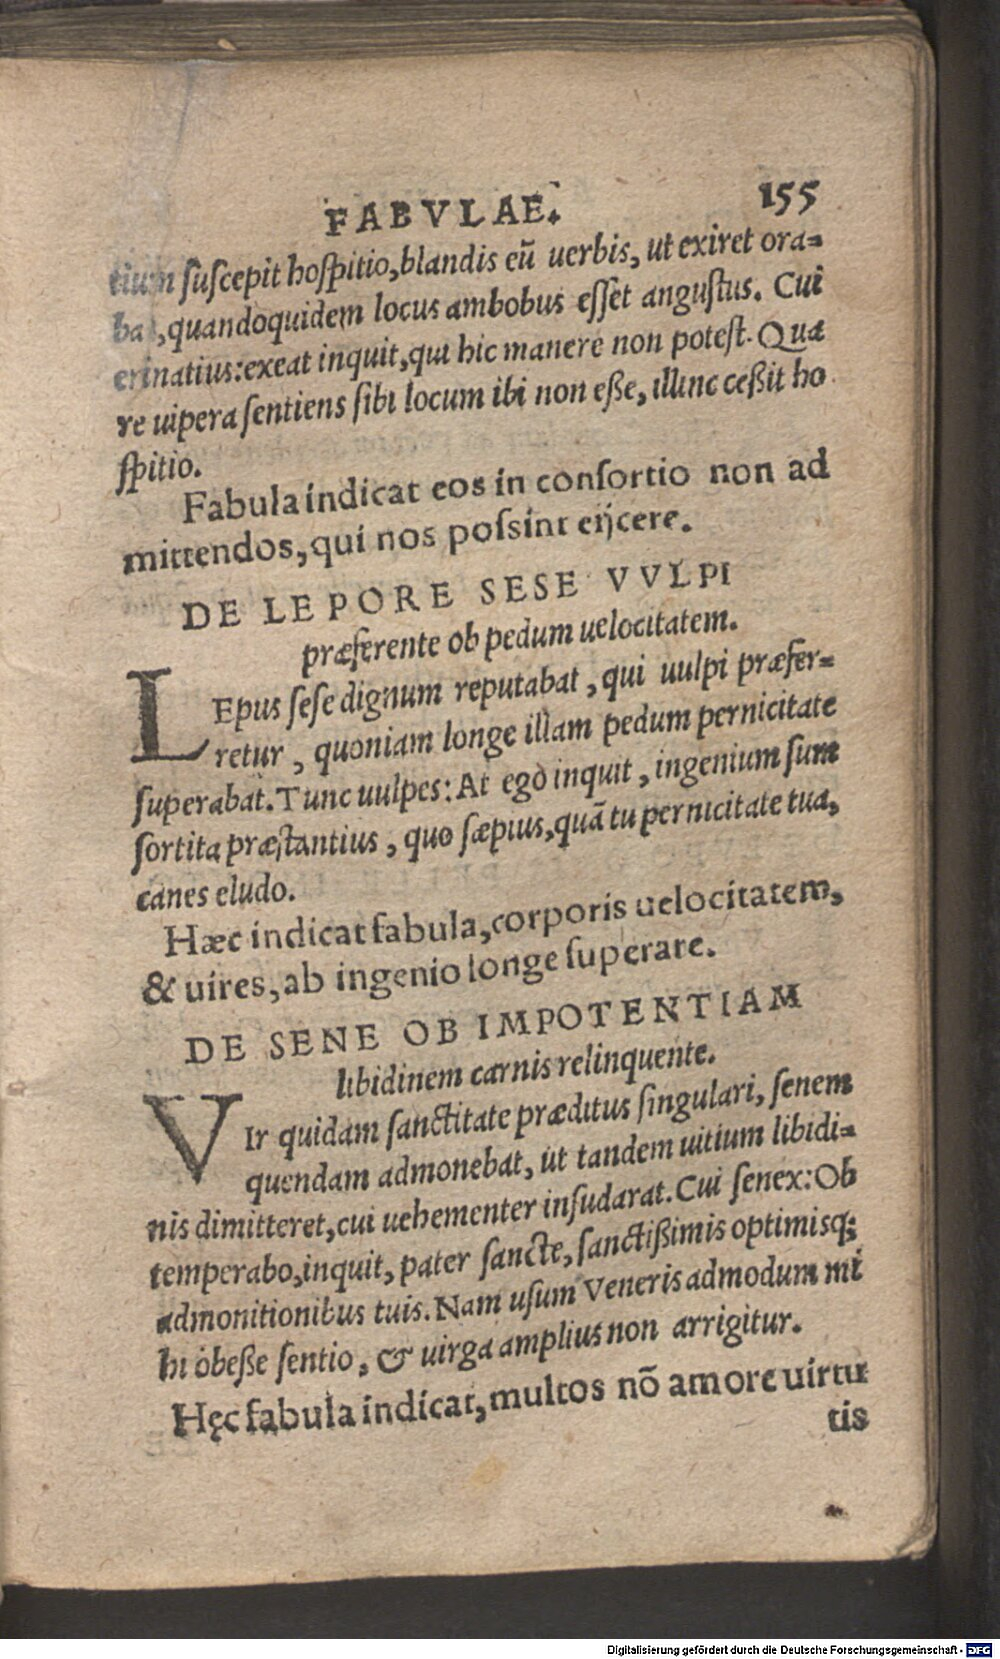 FABVLAE. 155
tium suscepit hospitio, blandis eũ uerbis, ut exiret ora=
bat, quandoquidem locus ambobus esset angustus. Cui
erinatius: exeat inquit, qui hic manere non potest. Quæ
re uipera sentiens sibi locum ibi non eße, illinc ceßit ho
spitio.
Fabula indicat eos in consortio non ad
mittendos, qui nos possint eijcere.
DE LEPORE SESE VVLPI
præferente ob pedum uelocitatem.
LEpus sese dignum reputabat, qui uulpi præfer=
retur, quoniam longe illam pedum pernicitate
superabat. Tunc uulpes: At ego inquit, ingenium sum
sortita præstantius, quo sæpius, quã tu pernicitate tua,
canes eludo.
Hæc indicat fabula, corporis uelocitatem,
& uires, ab ingenio longe superare.
DE SENE OB IMPOTENTIAM
libidinem carnis relinquente.
VIr quidam sanctitate præditus singulari, senem
quendam admonebat, ut tandem uitium libidi=
nis dimitteret, cui uehementer insudarat. Cui senex: Ob
temperabo, inquit, pater sancte, sanctißimis optimisq;
admonitionibus tuis. Nam usum Veneris admodum mi
hi obeße sentio, & uirga amplius non arrigitur.
Hęc fabula indicat, multos nõ amore uirtu
tis
Digitalisierung gefördert durch die Deutsche Forschungsgemeinschaft - DFG